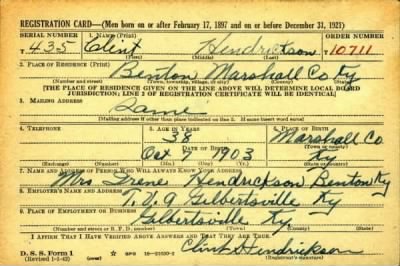 REGISTRATION CARD—(Men born on or after February 17, 1897 and on or before December 31, 1921)
SERIAL NUMBER 1. NAME (Print) ORDER NUMBER
T 435 Clint Hendrickson 10711
(First) (Middle) (Last)
2. PLACE OF RESIDENCE (Print)
Benton Marshall Co Ky
(Number and street) (Town, township, village, or city) (County) (State)
[THE PLACE OF RESIDENCE GIVEN ON THE LINE ABOVE WILL DETERMINE LOCAL BOARD
JURISDICTION; LINE 2 OF REGISTRATION CERTIFICATE WILL BE IDENTICAL]
3. MAILING ADDRESS
Same
[Mailing address if other than place indicated on line 2. If same insert word same]
4. TELEPHONE 5. AGE IN YEARS 6. PLACE OF BIRTH
38 Marshall Co
DATE OF BIRTH (Town or county)
Oct 7 1903 Ky
(Exchange) (Number) (Mo.) (Day) (Yr.) (State or country)
7. NAME AND ADDRESS OF PERSON WHO WILL ALWAYS KNOW YOUR ADDRESS
Mrs Irene Hendrickson Benton Ky
8. EMPLOYER'S NAME AND ADDRESS
T.V.A Gilbertsville Ky
9. PLACE OF EMPLOYMENT OR BUSINESS
Gilbertsville Ky
(Number and street or R. F. D. number) (Town) (County) (State)
I AFFIRM THAT I HAVE VERIFIED ABOVE ANSWERS AND THAT THEY ARE TRUE.
D. S. S. Form 1
Clint Hendrickson